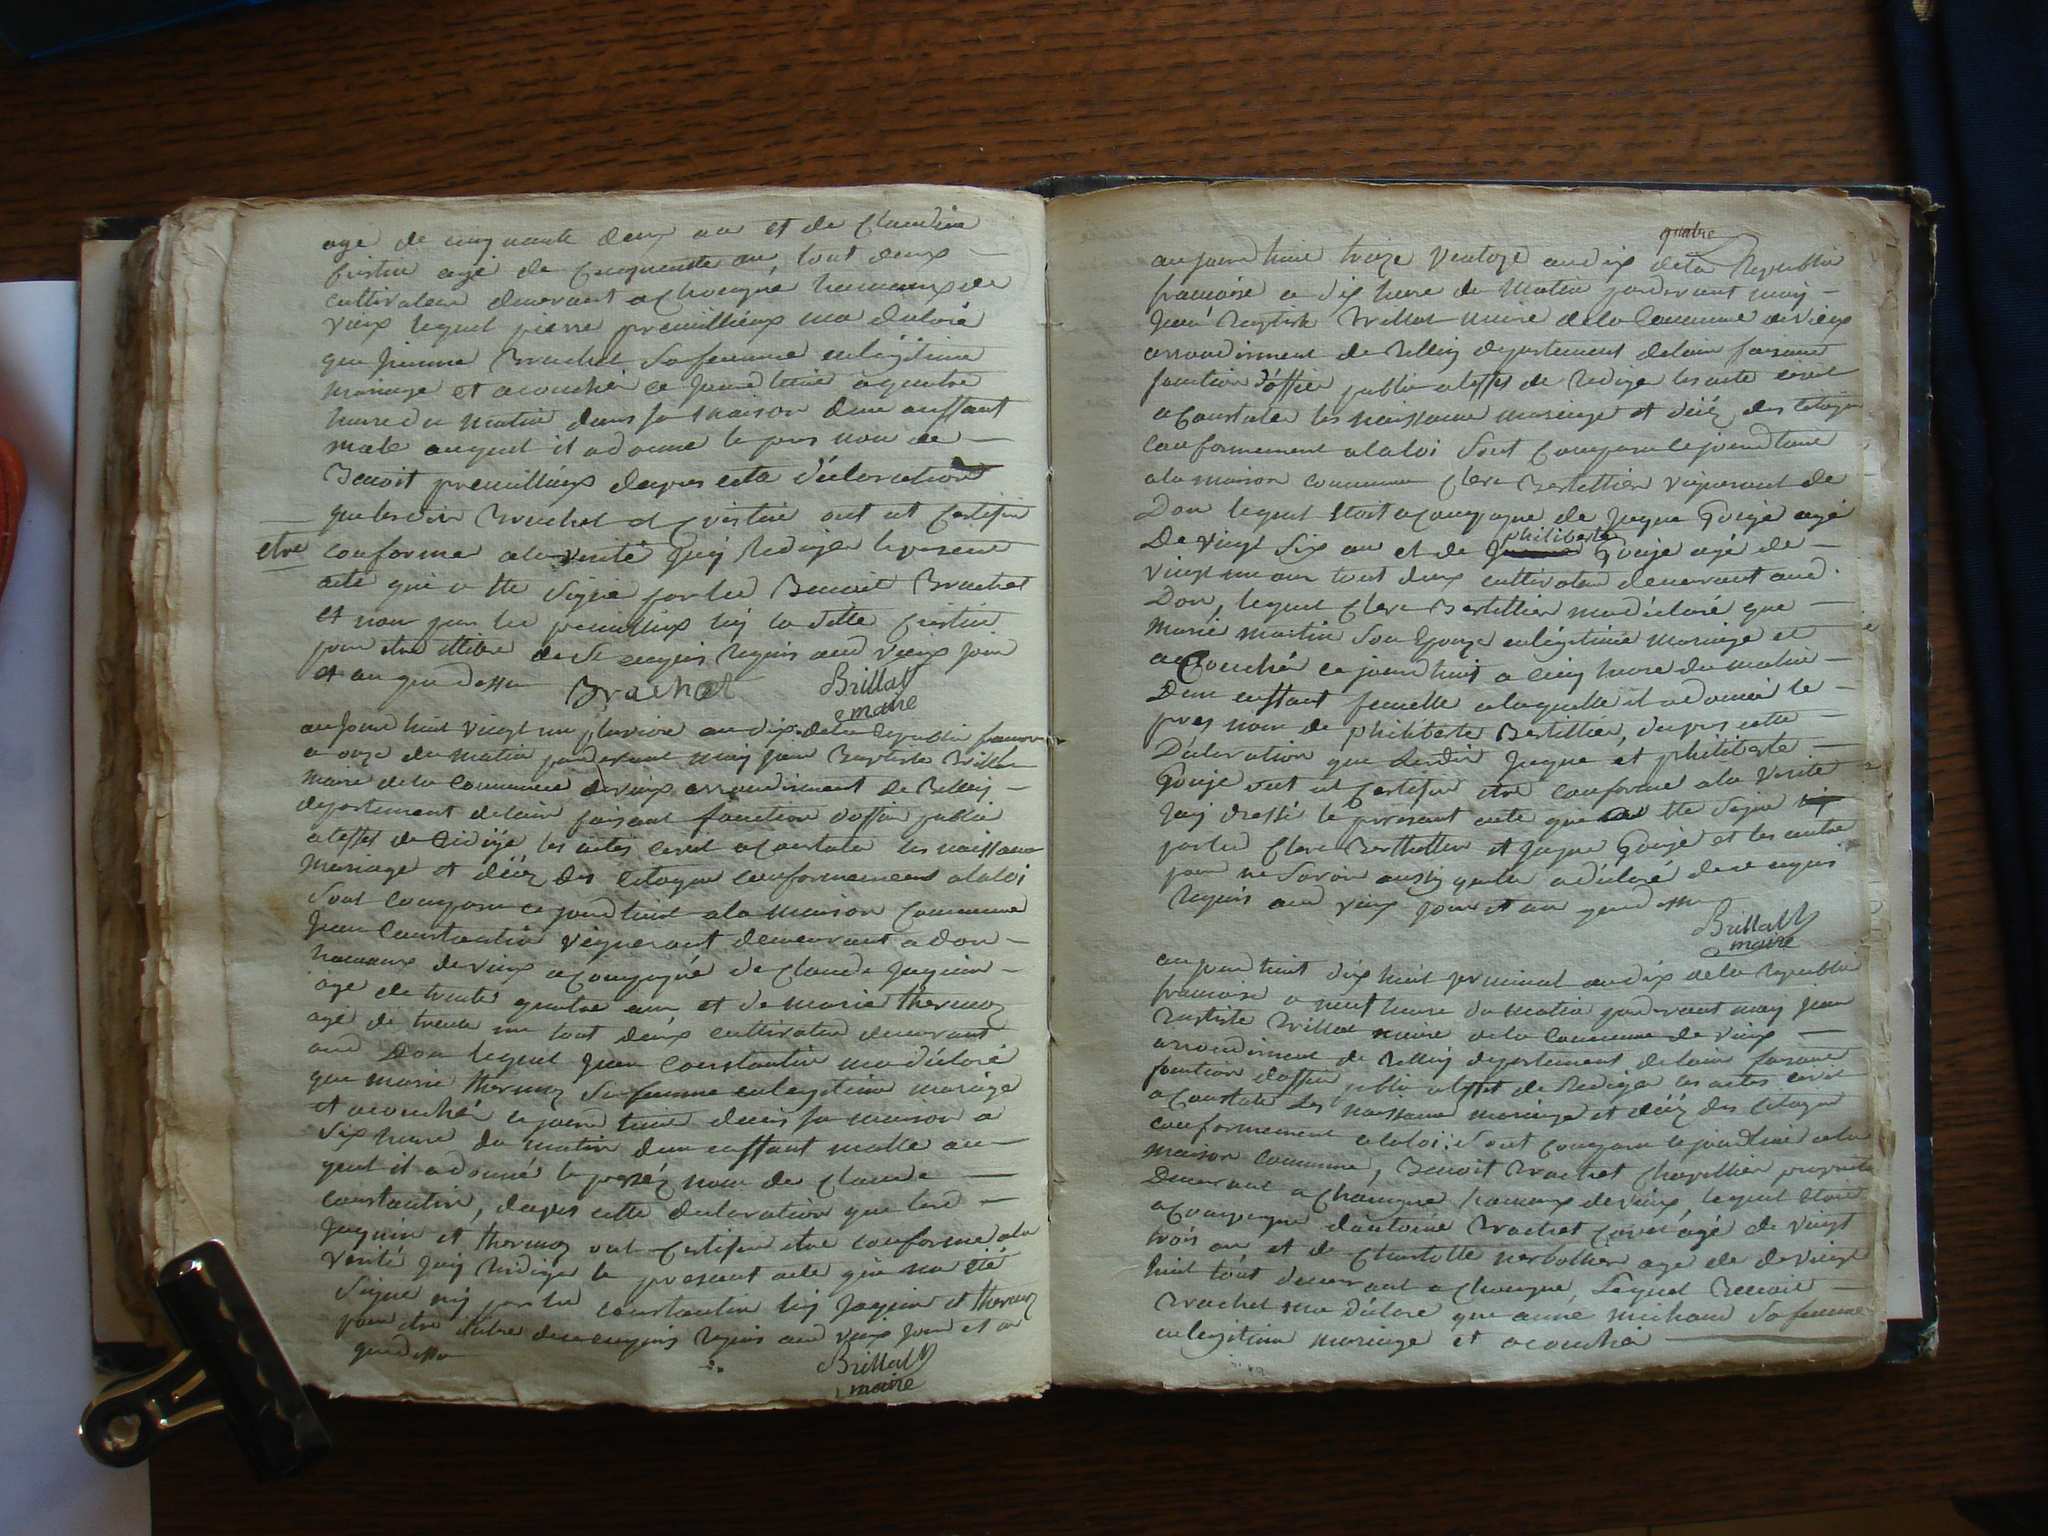 age de cinquante deux an et de Claudine
Cristin agé de cinquante an, tout deux
cultivateur demeurant a Chongne hameaux de
vieux lequel pierre premillieux ma déclaré
que jeanne Brachet sa femme en légitime
mariage et acouché ce jourdhuie a quatre
heure du matin dans sa maison dun enffant
male auquel il a donné le pres nom de
Benoit premillieux dapres cette déclaration
que lesdits Brachet et Cristin ont et Certifier
etre
conforme a la verité jaÿ Rediger le present
acte qui a ette signe par led Benoit Brachet
et non par led premillieux nÿ la ditte Cristin
pour etre illitere de ce enquis Requis aud vieux jour
et an que dessu Brachet Brillat
maire
aujourdhuit vingt un pluviose an dix de la republie francoise
a onze du matin pardevant moy jean Baptiste Brillat
maire de la Commune de vieux arrondisment de Belleÿ
departement delain faisant fonction doffier public
a leffet de Rediger les actes civil a Constater les naissance
mariage et décéz des Citoyen conformement a la loi
sont comparu ce jourdhuit a la maison Commune
jean Constantin vigneront demeurant a don
hameaux de vieux acompagné de Claude jaquin
age de trente quatre an et de marie thermoz
agé de trente un tout deux cultivateur demeurant
aud Don lequel jean Constantin ma déclaré
que marie thermoz sa femme en legitime mariage
et acouché ce jourdhuit dans sa maison a
six heure du matin dun enffant malle au
quel il a donné le presz nom de Claude
constantin, dapres cette declaration que lesd
jaquin et thermoz ont Certifier etre conforme a la
verité jaÿ Rediger le present acte qui na été
signe nÿ par led constantin nÿ jaquin et thermoz
pour etre ilitere de ce enquis Requis aud vieux jour et an
que dessu
Brillat
maire
quatre
aujourdhuie treize ventoze an dix de la Republie
francoise a dix heure du matin pardevant moy
jean Baptiste Brillat maire de la Commune de vieux
arrondisment de Belleÿ departement delain faisant
fonction d'offier public a leffet de Rediger les acte civil
a Constater les naissance mariage et décéz des Citoyen
conformement a la loi sont Comparu ce jourdhuie
a la maison commune Clere Bertettier vigneront de
Don lequel etoit acompagne de jaque Gouje agé
De vingt six an et de philiberte Gouje agé de
vingt un an tout deux cultivateur demeurant aud
Don, lequel Clere Bertillier ma déclaré que
marie martin son Epouze en légitime mariage et
acCouché ce jourdhuit a cinq heure du matin
Dun enffant femelle a laquelle il a donné le
pres nom de philiberte Bertillier, dapres cette
Declaration que lesdit jaque et philiberte
Gouje ont et Certifier etre conforme a la verité
jaÿ dressé le present acte que ette signe
par led Clere Berthettier et jaque Gouje et les autre
pour ne savoir ausiÿ quele a déclaré de ce enquis
Requis aud vieux jour et an que dessu
Brillat
maire
aujourdhuit dix huit germinal an dix de la republie
francoise a neuf heure du matin pardevant moy jean
Baptiste Brillat maire de la Commune de vieux
arrondisment de Belleÿ departement delain faisant
fonction doffier public a leffet de Rediger les actes civil
a Constater les naissance mariage et décéz des Citoyen
conformement a la loi sont comparu ce jourdhuie a la
maison commune, Benoit Brachet Chapellier
Demeurant a Chongne hameaux de vieux lequel etoit
acompagne dantoine Brachet agé de vingt
trois an et de Charlotte age de vingt
huit tout demeurant a Chongne, Lequel Benoit
Brachet ma déclaré que anne michaud sa femme
en legitime mariage et acouché